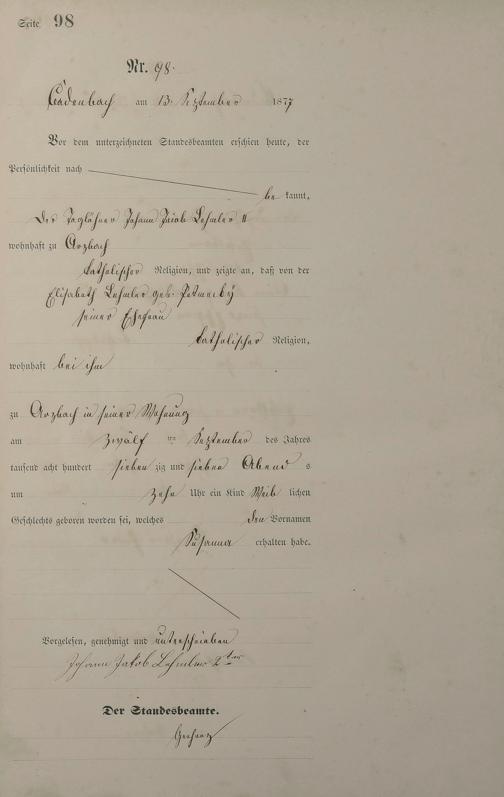 Seite 98
Nr. 98.
Cadenbach am 13. September 1877
Vor dem unterzeichneten Standesbeamten erschien heute, der
Persönlichkeit nach
be kannt,
der Taglöhner Johann Jacob Lehmler II
wohnhaft zu Arzbach
katholischer Religion, und zeigte an, daß von der
Elisabeth Lehmler geb.
seiner Ehefrau
katholischer Religion,
wohnhaft bei ihm
zu Arzbach in seiner Wohnung
am zwölf ten September des Jahres
tausend acht hundert sieben zig und sieben Abend s
um zehn Uhr ein Kind Weib lichen
Geschlechts geboren worden sei, welches den Vornamen
Susanna erhalten habe.
Vorgelesen, genehmigt und unterschrieben
Johann Jakob Lehmler 2ter
Der Standesbeamte.